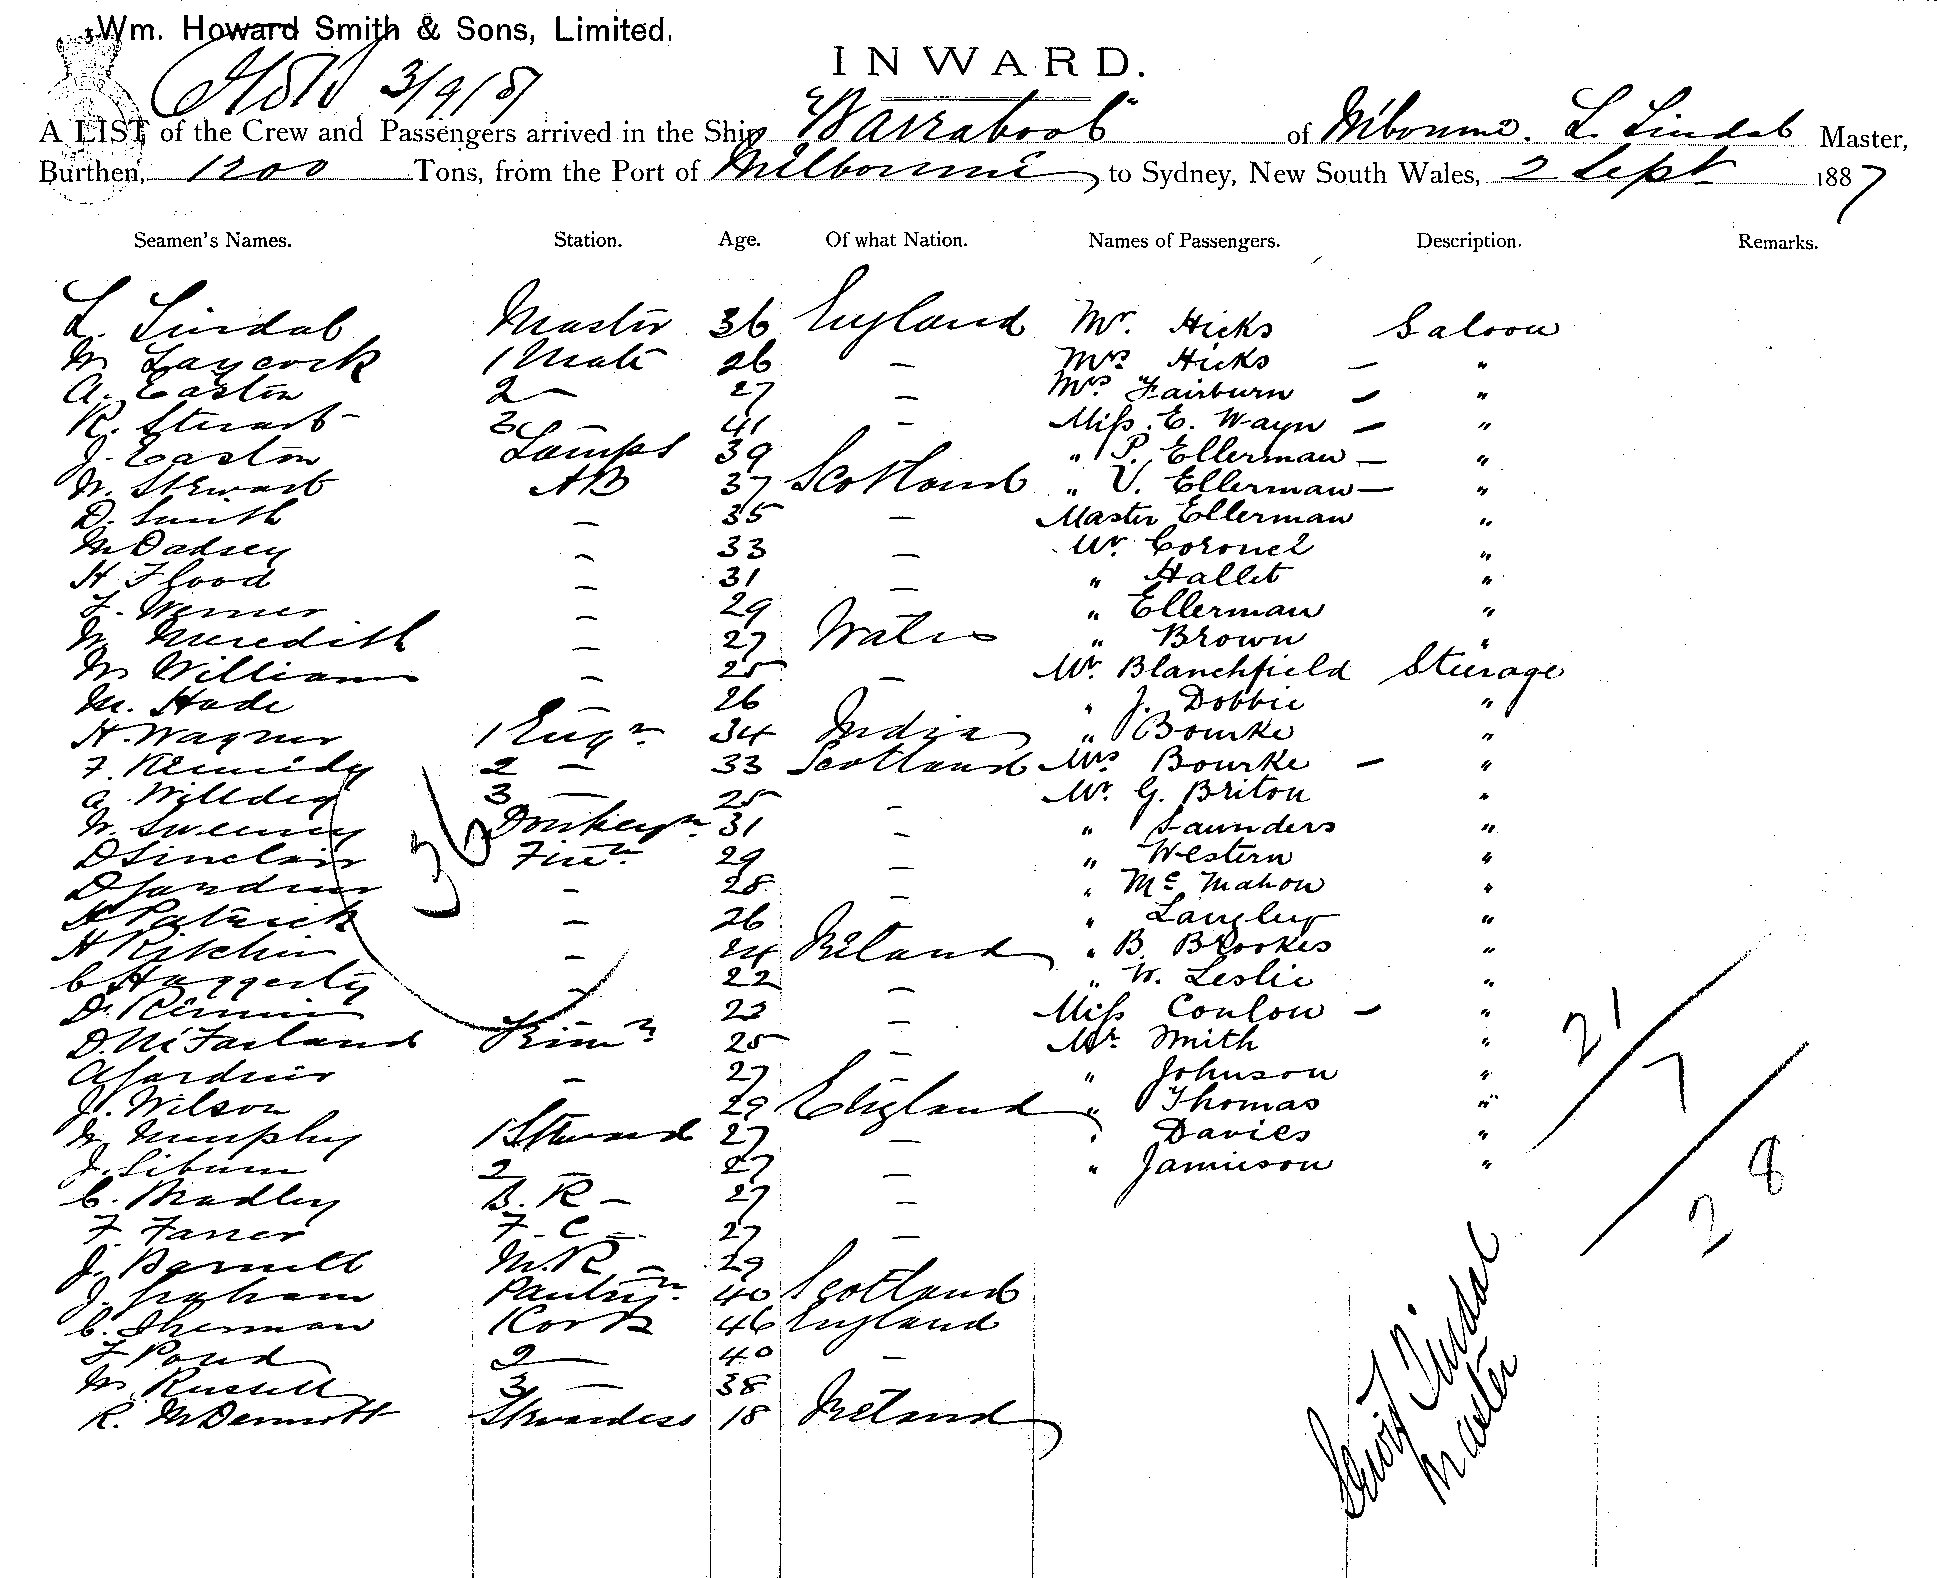 Wm. Howard Smith & Sons, Limited.
INWARD.
3/9/87
A LIST of the Crew and Passengers arrived in the Ship "Barrabool" of Melbourne. L. Lindal Master,
Burthen, 1200 Tons, from the Port of Melbourne to Sydney, New South Wales, 2 Sept 1887
Seamen's Names. Station. Age. Of what Nation. Names of Passengers. Description. Remarks.
L. Lindal Master 36 England Mr. Hicks Saloon
W Laycock 1 Mate 26 — Mrs Hicks — "
A. Easton 2 — 27 — Mrs Fairburn — "
R. Stuart 3 41 — Miss E. Wayn — "
J. Easton Lamps 39 " P. Ellerman — "
W. Stewart AB 37 Scotland " V. Ellerman — "
D. Smith — 35 — Master Ellerman "
M Dadsey — 33 — Mr. Coronel "
H Flood — 31 — " Hallet "
F. Werner — 29 " Ellerman "
W Meredith — 27 Wales " Brown "
W William — 25 — Mr Blanchfield Steerage
M. Hade — 26 " J. Dobbie "
H. Wagner 1 Engr 34 India " Bourke "
F. Kennedy 2 — 33 Scotland Mrs Bourke — "
A Willdey 3 — 25 — Mr. G. Briton "
W. Sweeney Donkeyn 31 — " Saunders "
D Sinclair Firn 29 — " Western "
D Gardiner — 28 — " Mc Mahon "
H Patrick — 26 " Langley "
H Ritchie — 24 Ireland " B. Brookes "
C Haggerty — 22 — " W. Leslie "
D. Rennie — 23 — Miss Conlow — "
D. McFarland Trimn 25 — Mr. Smith "
A Gardiner — 27 — " Johnson "
J. Wilson 29 England " Thomas "
W Murphy 1 Steward 27 — " Davies "
J. Siburn 2 — 27 — " Jamieson "
C. Bradley B. R — 27 —
F. Farrer F. C — 27 —
J. Barnett M.R — 29
J. Graham Pantryn 40 Scotland
C. Sherman 1 Cook 46 England
F Pond 2 — 40 —
W Russell 3 — 38
R. McDermott Stewardess 18 Ireland
36
21
7
28
Lewis Lindal
Master